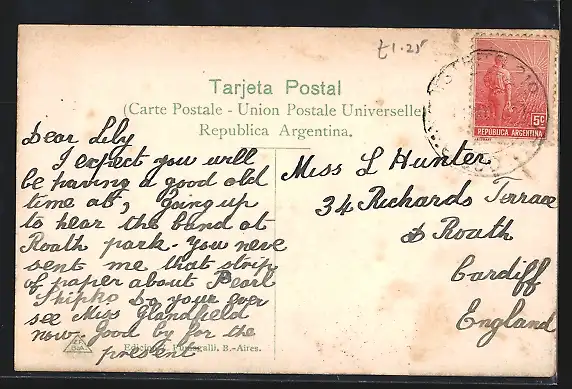 £1.25
Tarjeta Postal
(Carte Postale - Union Postale Universelle)
Republica Argentina.
5c
REPUBLICA ARGENTINA
Dear Lily
I expect you will
be having a good old
time at, going up
to hear the band at
Roath park. You neve
sent me that strip
of paper about Pearl
Skipko Do your ever
see Miss Glandfield
now. Good by for the
present
Miss L Hunter
34 Richards Terrace
Roath
Cardiff
England
Fumagalli, B.-Aires.